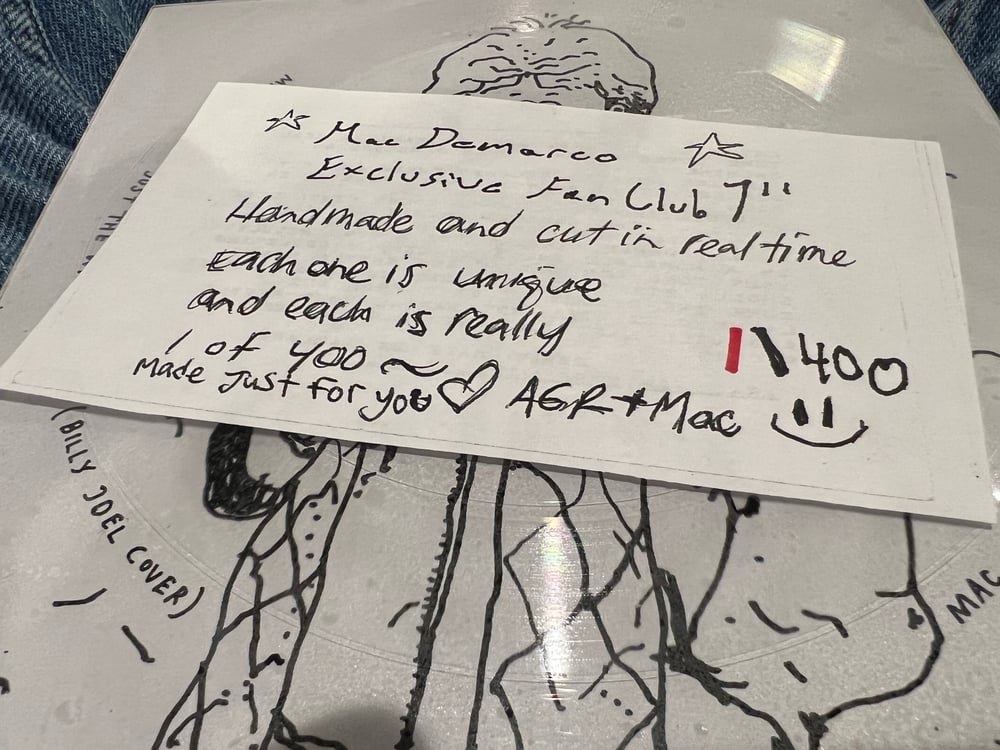 ☆ Mac Demarco ☆
Exclusive Fan Club 7"
Handmade and cut in real time
Each one is unique
and each is really
1 of 400 ~
Made Just for you ♡ AGR + Mac
1\400
JUST THE
(BILLY JOEL COVER)
MAC